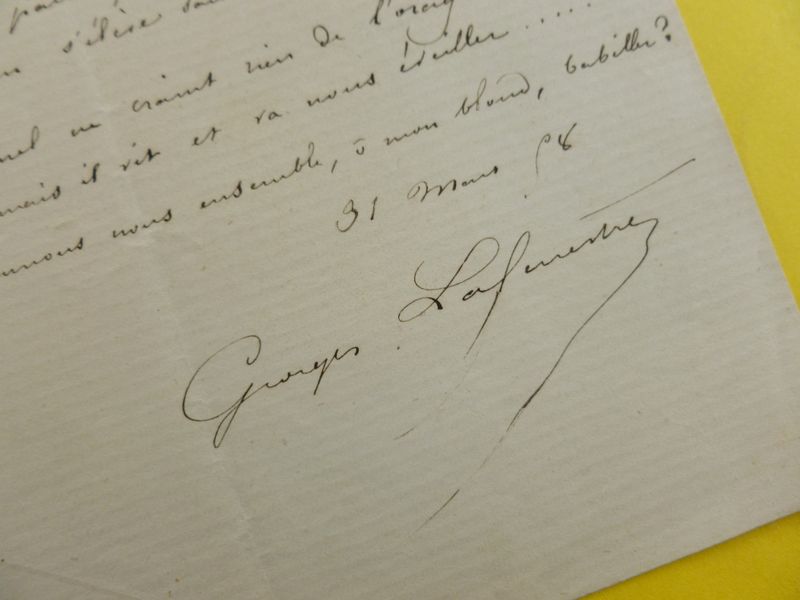 s'élève
ne craint rien de l'orag
mais il rit et va nous éveiller .....
nous ensemble, ô mon blond, babiller?
31 Mars 58
Georges Lafenestre